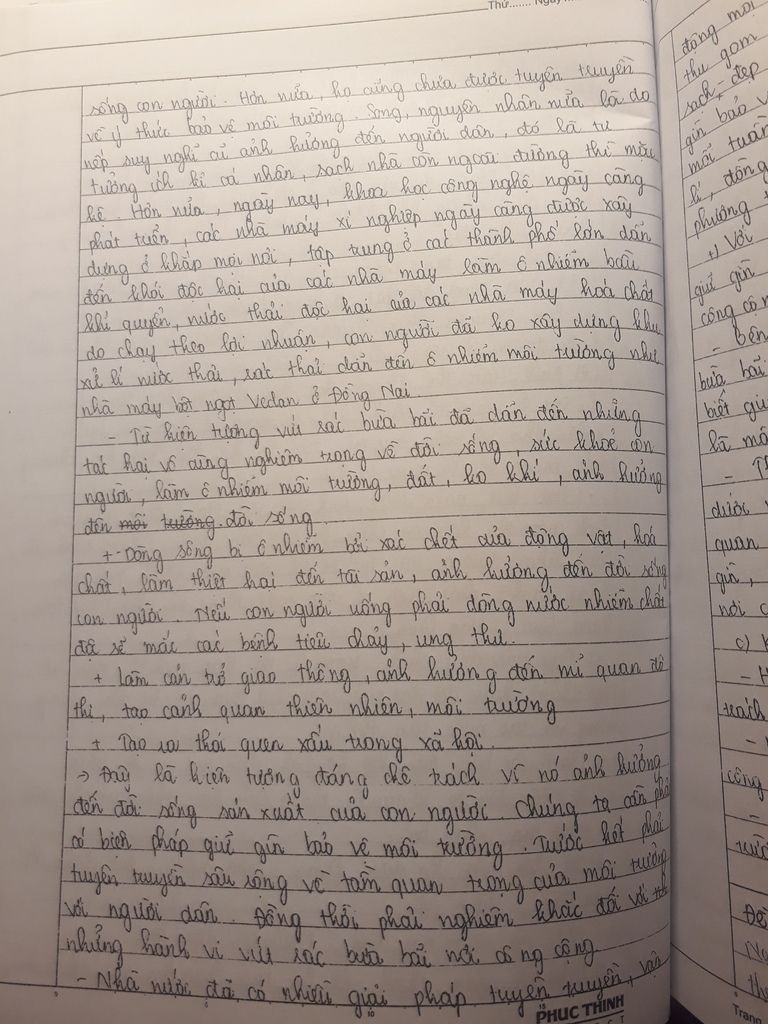 Thứ....... Ngày
sống con người. Hơn nữa, họ cũng chưa được tuyên truyền
về ý thức bảo vệ môi trường. Song, nguyên nhân nữa là do
nếp suy nghĩ cũ ảnh hưởng đến người dân, đó là tư
tưởng ích kỉ cá nhân, sạch nhà còn ngoài đường thì mặc
kệ. Hơn nữa, ngày nay, khoa học công nghệ ngày càng
phát triển, các nhà máy xí nghiệp ngày càng được xây
dựng ở khắp mọi nơi, tập trung ở các thành phố lớn dẫn
đến khói độc hại của các nhà máy làm ô nhiễm bầu
khí quyển, nước thải độc hại của các nhà máy hoá chất
do chạy theo lợi nhuận, con người đã ko xây dựng khu
xử lí nước thải, rác thải dẫn đến ô nhiễm môi trường như
nhà máy bột ngọt Vedan ở Đồng Nai.
- Từ hiện tượng vứt rác bừa bãi đã dẫn đến những
tác hại vô cùng nghiêm trọng về đời sống, sức khoẻ con
người, làm ô nhiễm môi trường, đất, ko khí, ảnh hưởng
đến môi trường. đời sống
+ Dòng sông bị ô nhiễm bởi xác chết của động vật, hoá
chất, làm thiệt hại đến tài sản, ảnh hưởng đến đời sống
con người. Nếu con người uống phải dòng nước nhiễm chất
độc sẽ mắc các bệnh tiêu chảy, ung thư.
+ Làm cản trở giao thông, ảnh hưởng đến mĩ quan đô
thị, tạo cảnh quan thiên nhiên, môi trường
+ Tạo ra thói quen xấu trong xã hội.
→ Đây là hiện tượng đáng chê trách vì nó ảnh hưởng
đến đời sống sản xuất của con người. Chúng ta cần phải
có biện pháp giữ gìn bảo vệ môi trường. Trước hết phải
tuyên truyền sâu rộng về tầm quan trọng của môi trường
với người dân. Đồng thời phải nghiêm khắc đối với
những hành vi vứt rác bừa bãi nơi công cộng
- Nhà nước đã có nhiều giải pháp tuyên truyền, vận
PHUC THINH
động mọi
thu gom
sạch-đẹp
gìn bảo v
mỗi tuần
lí, đồng
phương t
+) Với
giữ gìn
công cộn
- Bên
bừa bãi
biết giữ
là mô
- Th
được
quan
gìn,
nơi c
c) K
- H
trách
công
-
trườ
Đề
Trang